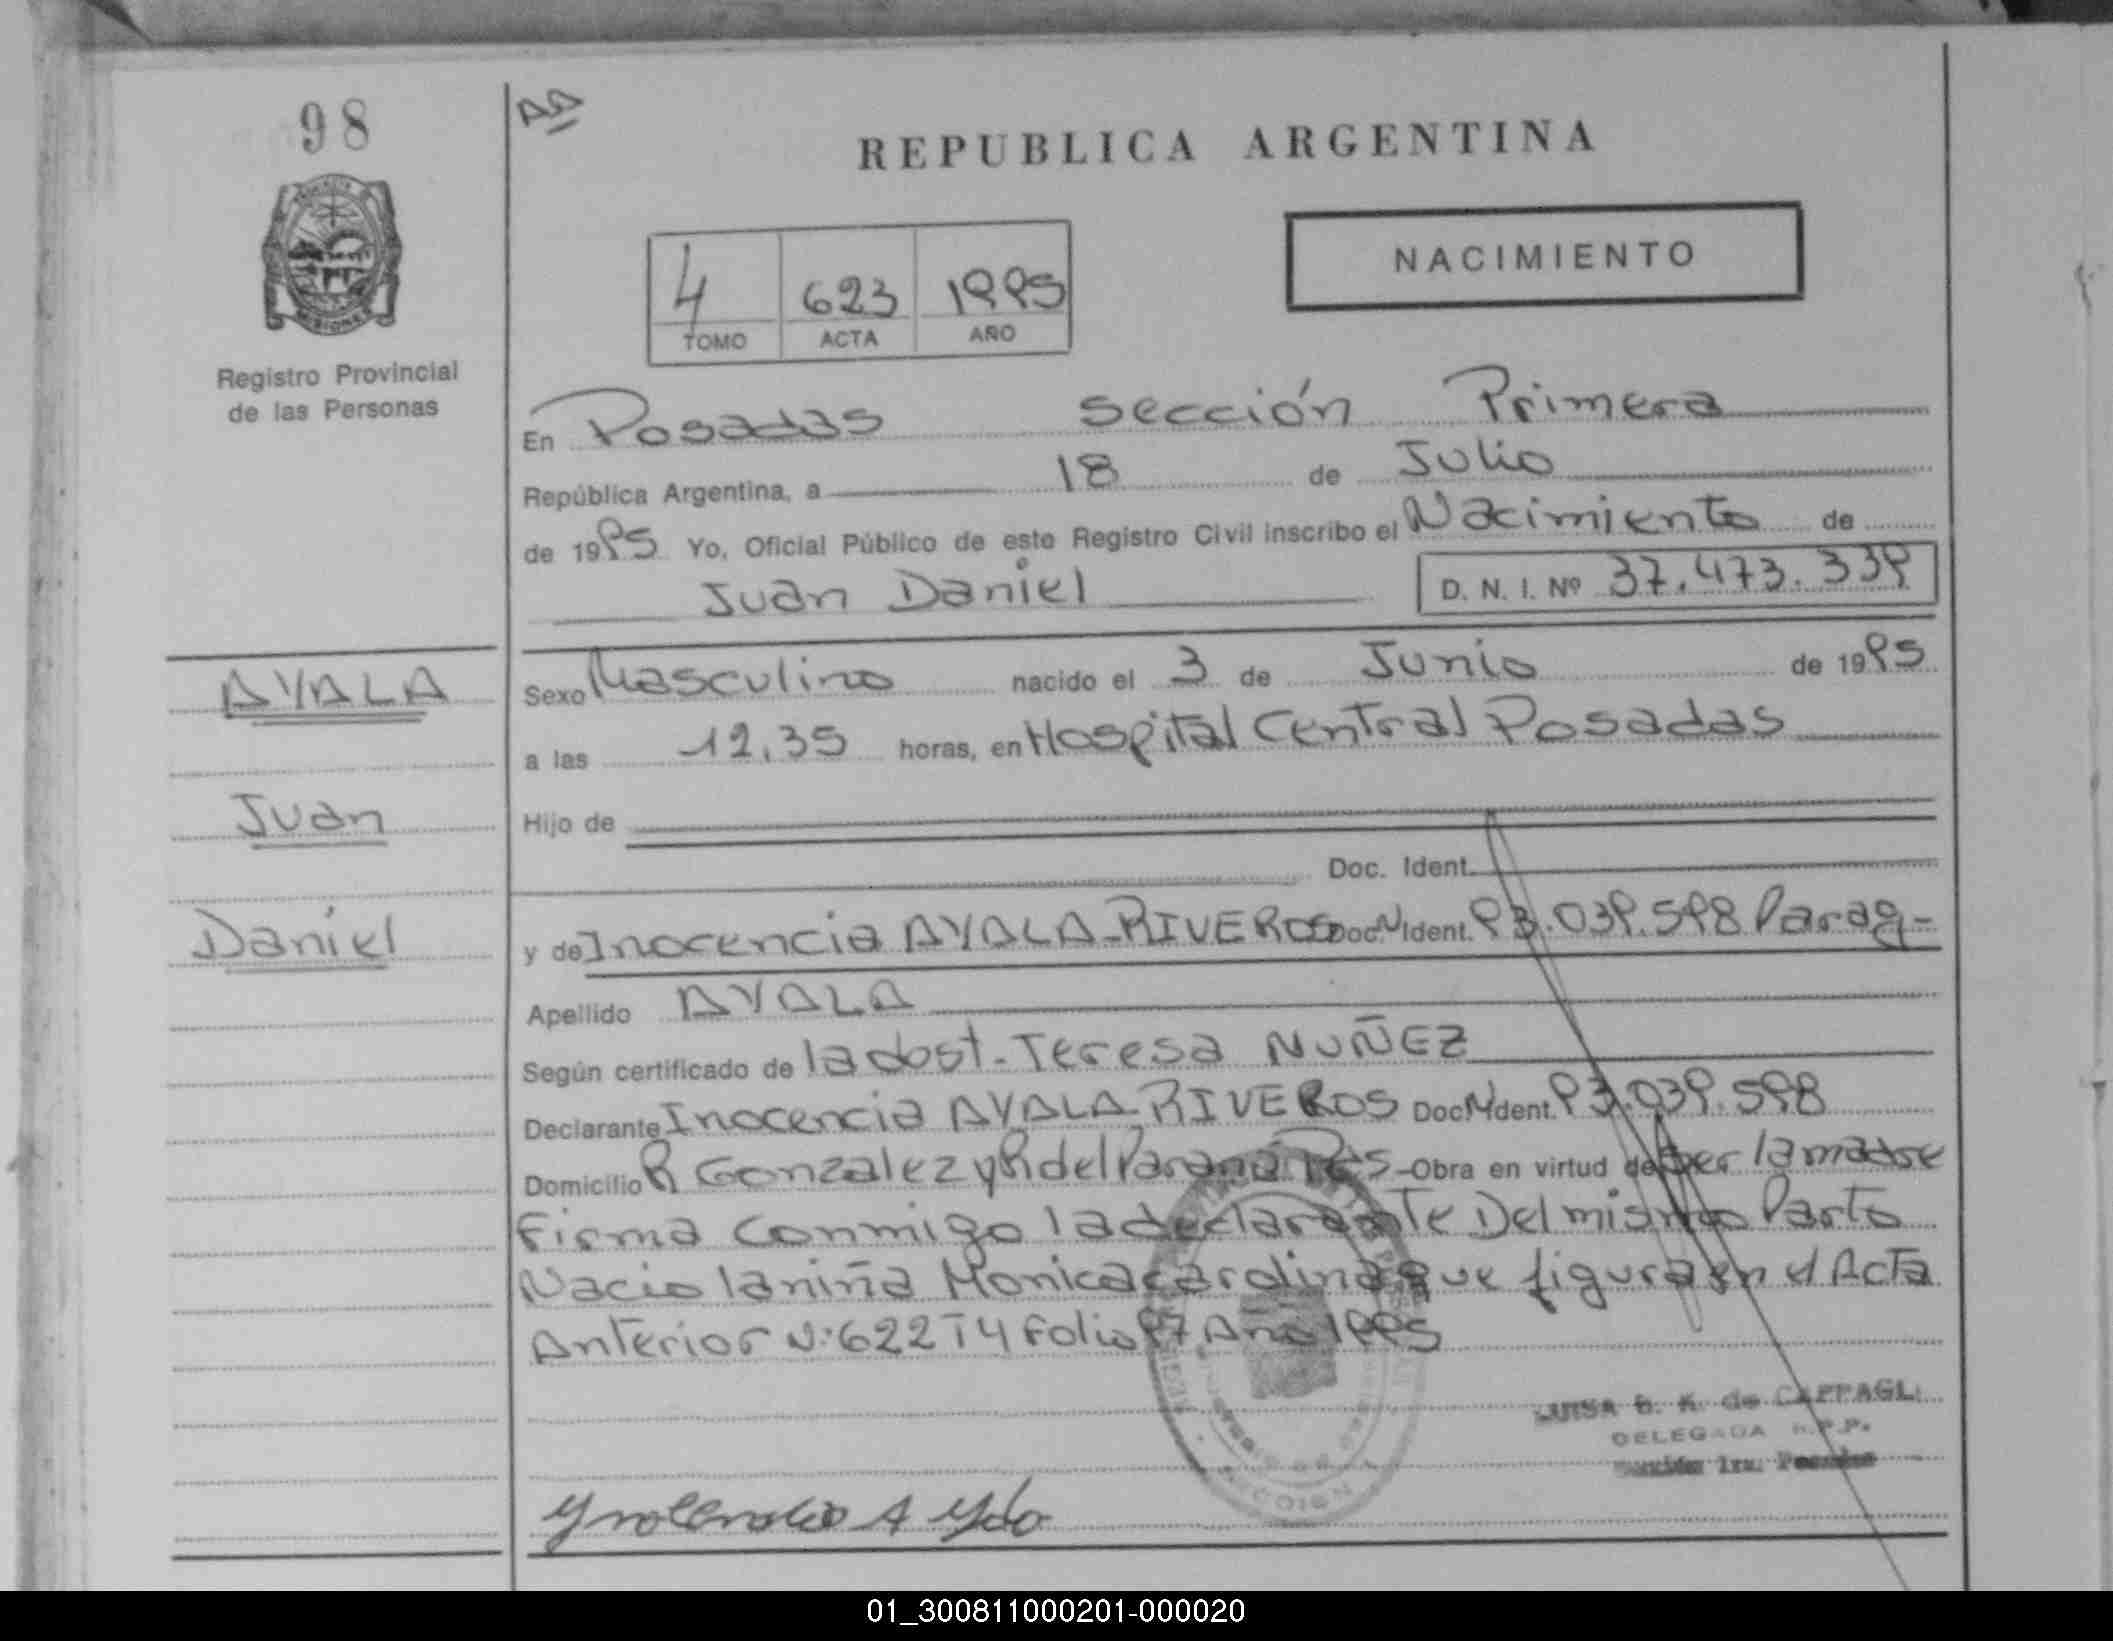 98
AA
REPUBLICA ARGENTINA
NACIMIENTO
4 623 1995
TOMO ACTA AÑO
MISIONES
Registro Provincial
de las Personas
En Posadas sección Primera
República Argentina, a 18 de Julio
de 1995 Yo, Oficial Público de este Registro Civil inscribo el Nacimiento de
Juan Daniel D. N. I. Nº 37.473.339
AYALA
Juan
Daniel
Sexo Masculino nacido el 3 de Junio de 1995
a las 12,35 horas, en Hospital Central Posadas
Hijo de
Doc. Ident.
y de Inocencia AYALA-RIVEROS Doc. N Ident. 93.039.598 Parag-
Apellido AYALA
Según certificado de la Obst-Teresa NUÑEZ
Declarante Inocencia AYALA-RIVEROS Doc. N Ident. 93.039.598
Domicilio R Gonzalez y R del Parana Pdas-Obra en virtud de ser la madre
firma conmigo la declarante Del mismo Parto
Nacio la niña Monica carolina que figura en el Acta
Anterior N:622 T4 folio 97 Año 1995
LUISA B. K. de CAFFAGLI
DELEGADA R.P.P.
Sección 1ra. Posadas
01_300811000201-000020